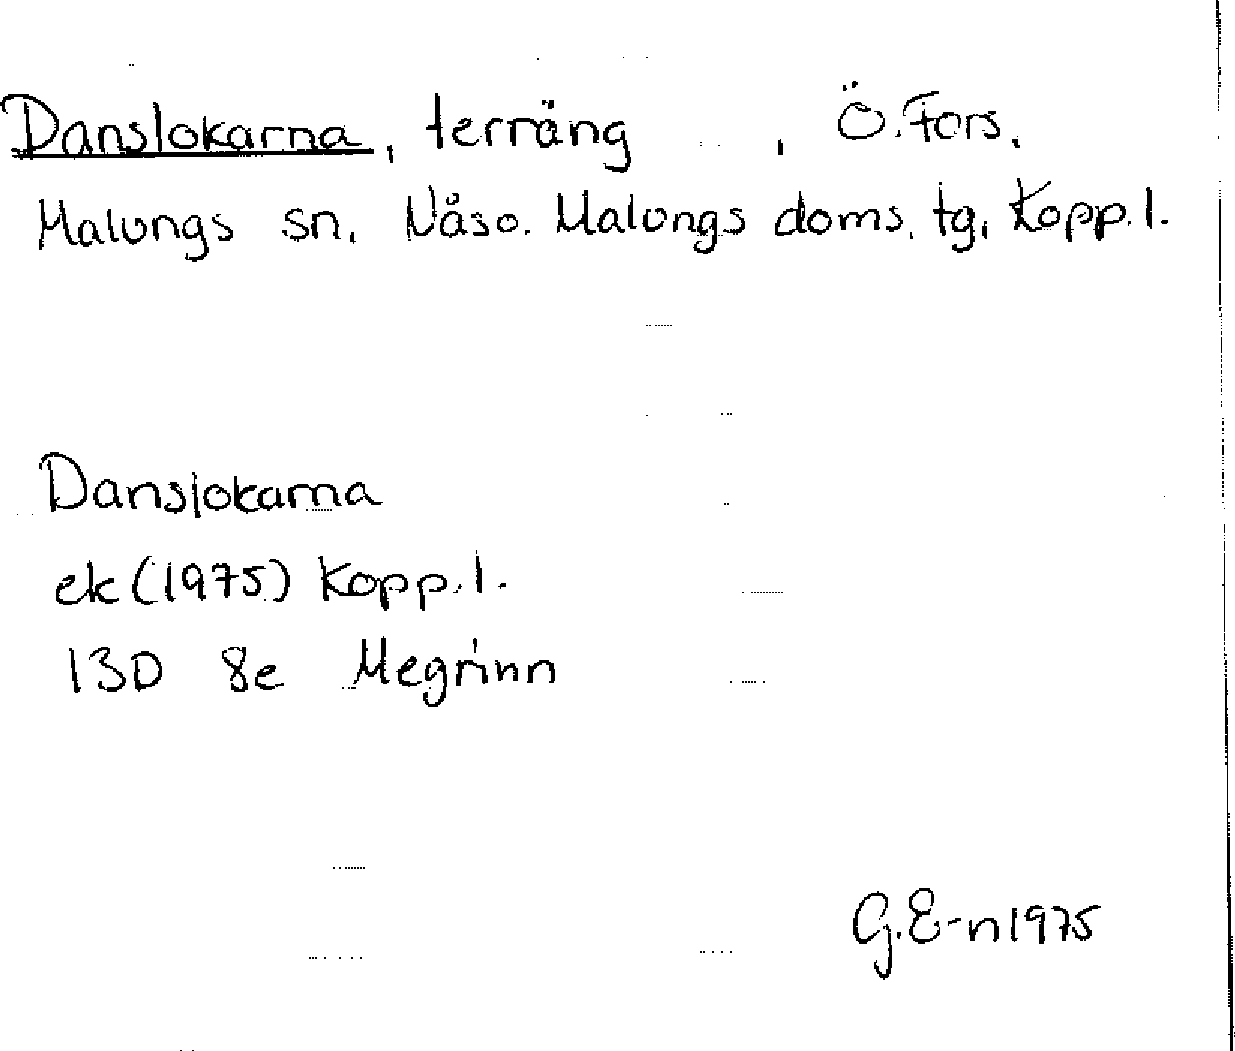 Danslokarna, terräng , Ö. Fors.
Malungs sn. Nåso. Malungs doms. tg. Kopp. l.
Danslokarna
ek (1975) Kopp. l.
13D 8e Megrinn
G. E-n 1975